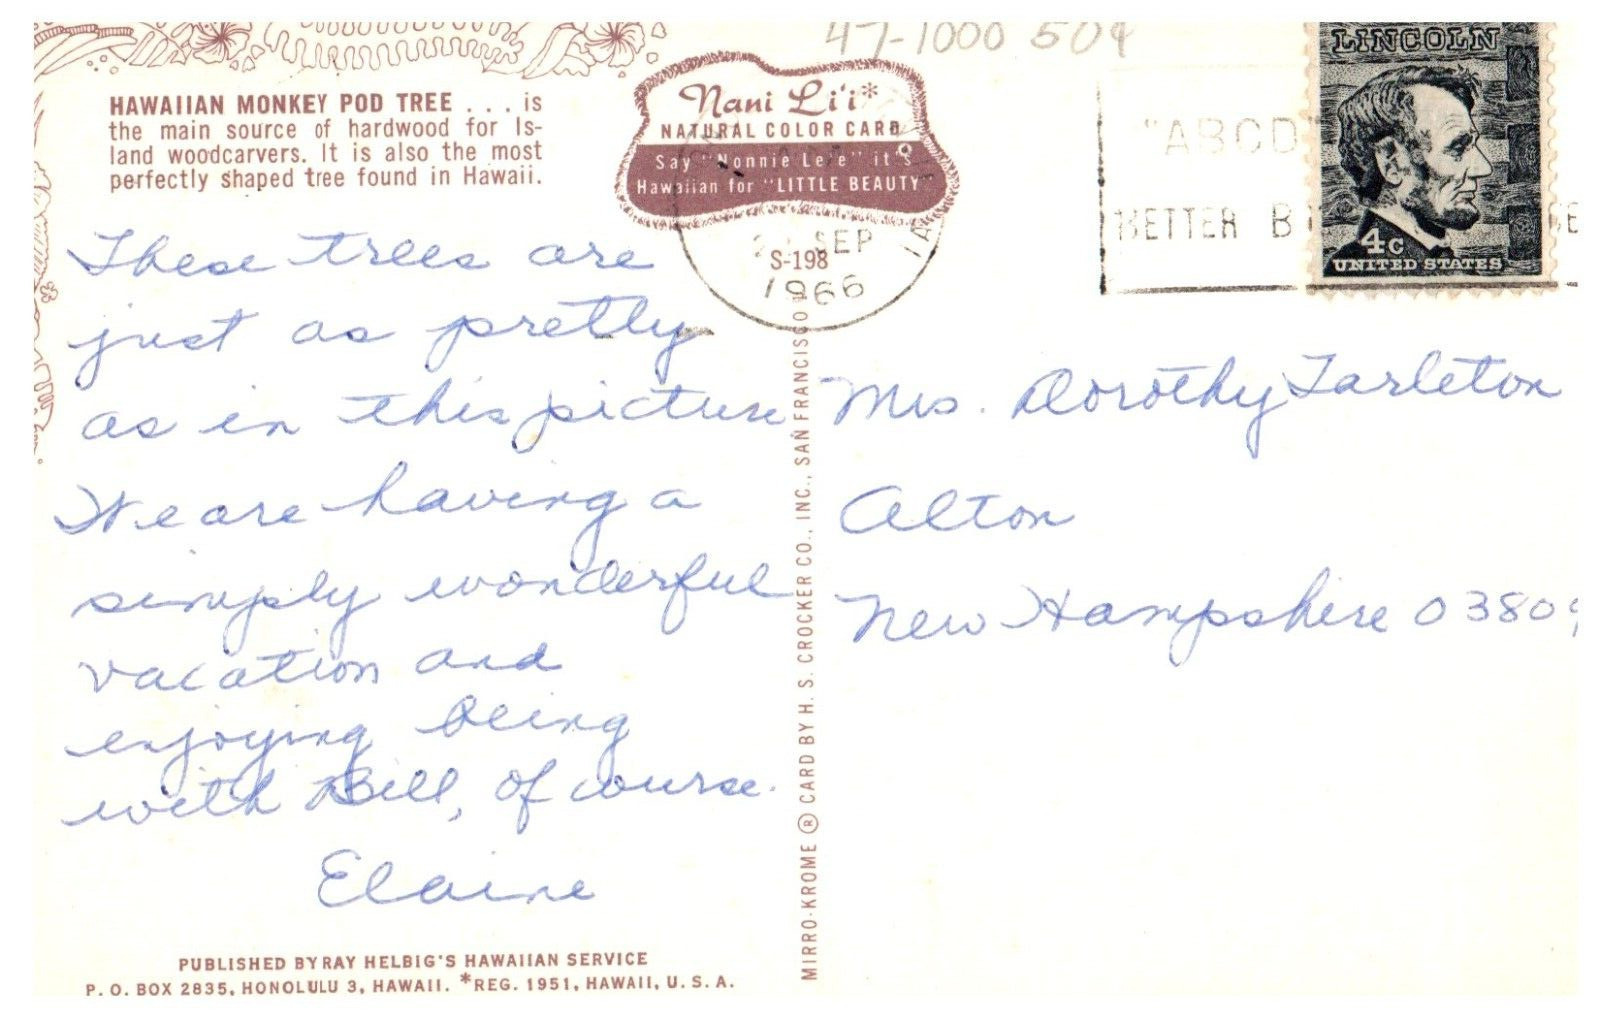 47-1000 50¢
HAWAIIAN MONKEY POD TREE . . . is
the main source of hardwood for Is-
land woodcarvers. It is also the most
perfectly shaped tree found in Hawaii.
Nani Li'i*
NATURAL COLOR CARD
Say "Nonnie Le'e" it's
Hawaiian for "LITTLE BEAUTY"
S-198
SEP
1966
"ABCD"
BETTER B
LINCOLN
4c
UNITED STATES
These trees are
just as pretty
as in this picture
We are having a
simply wonderful
vacation and
enjoying being
with Bill, of course.
Elaine
Mrs. Dorothy Tarleton
Alton
New Hampshire 03809
MIRRO-KROME ® CARD BY H. S. CROCKER CO., INC., SAN FRANCISCO
PUBLISHED BY RAY HELBIG'S HAWAIIAN SERVICE
P. O. BOX 2835, HONOLULU 3, HAWAII. *REG. 1951, HAWAII, U. S. A.